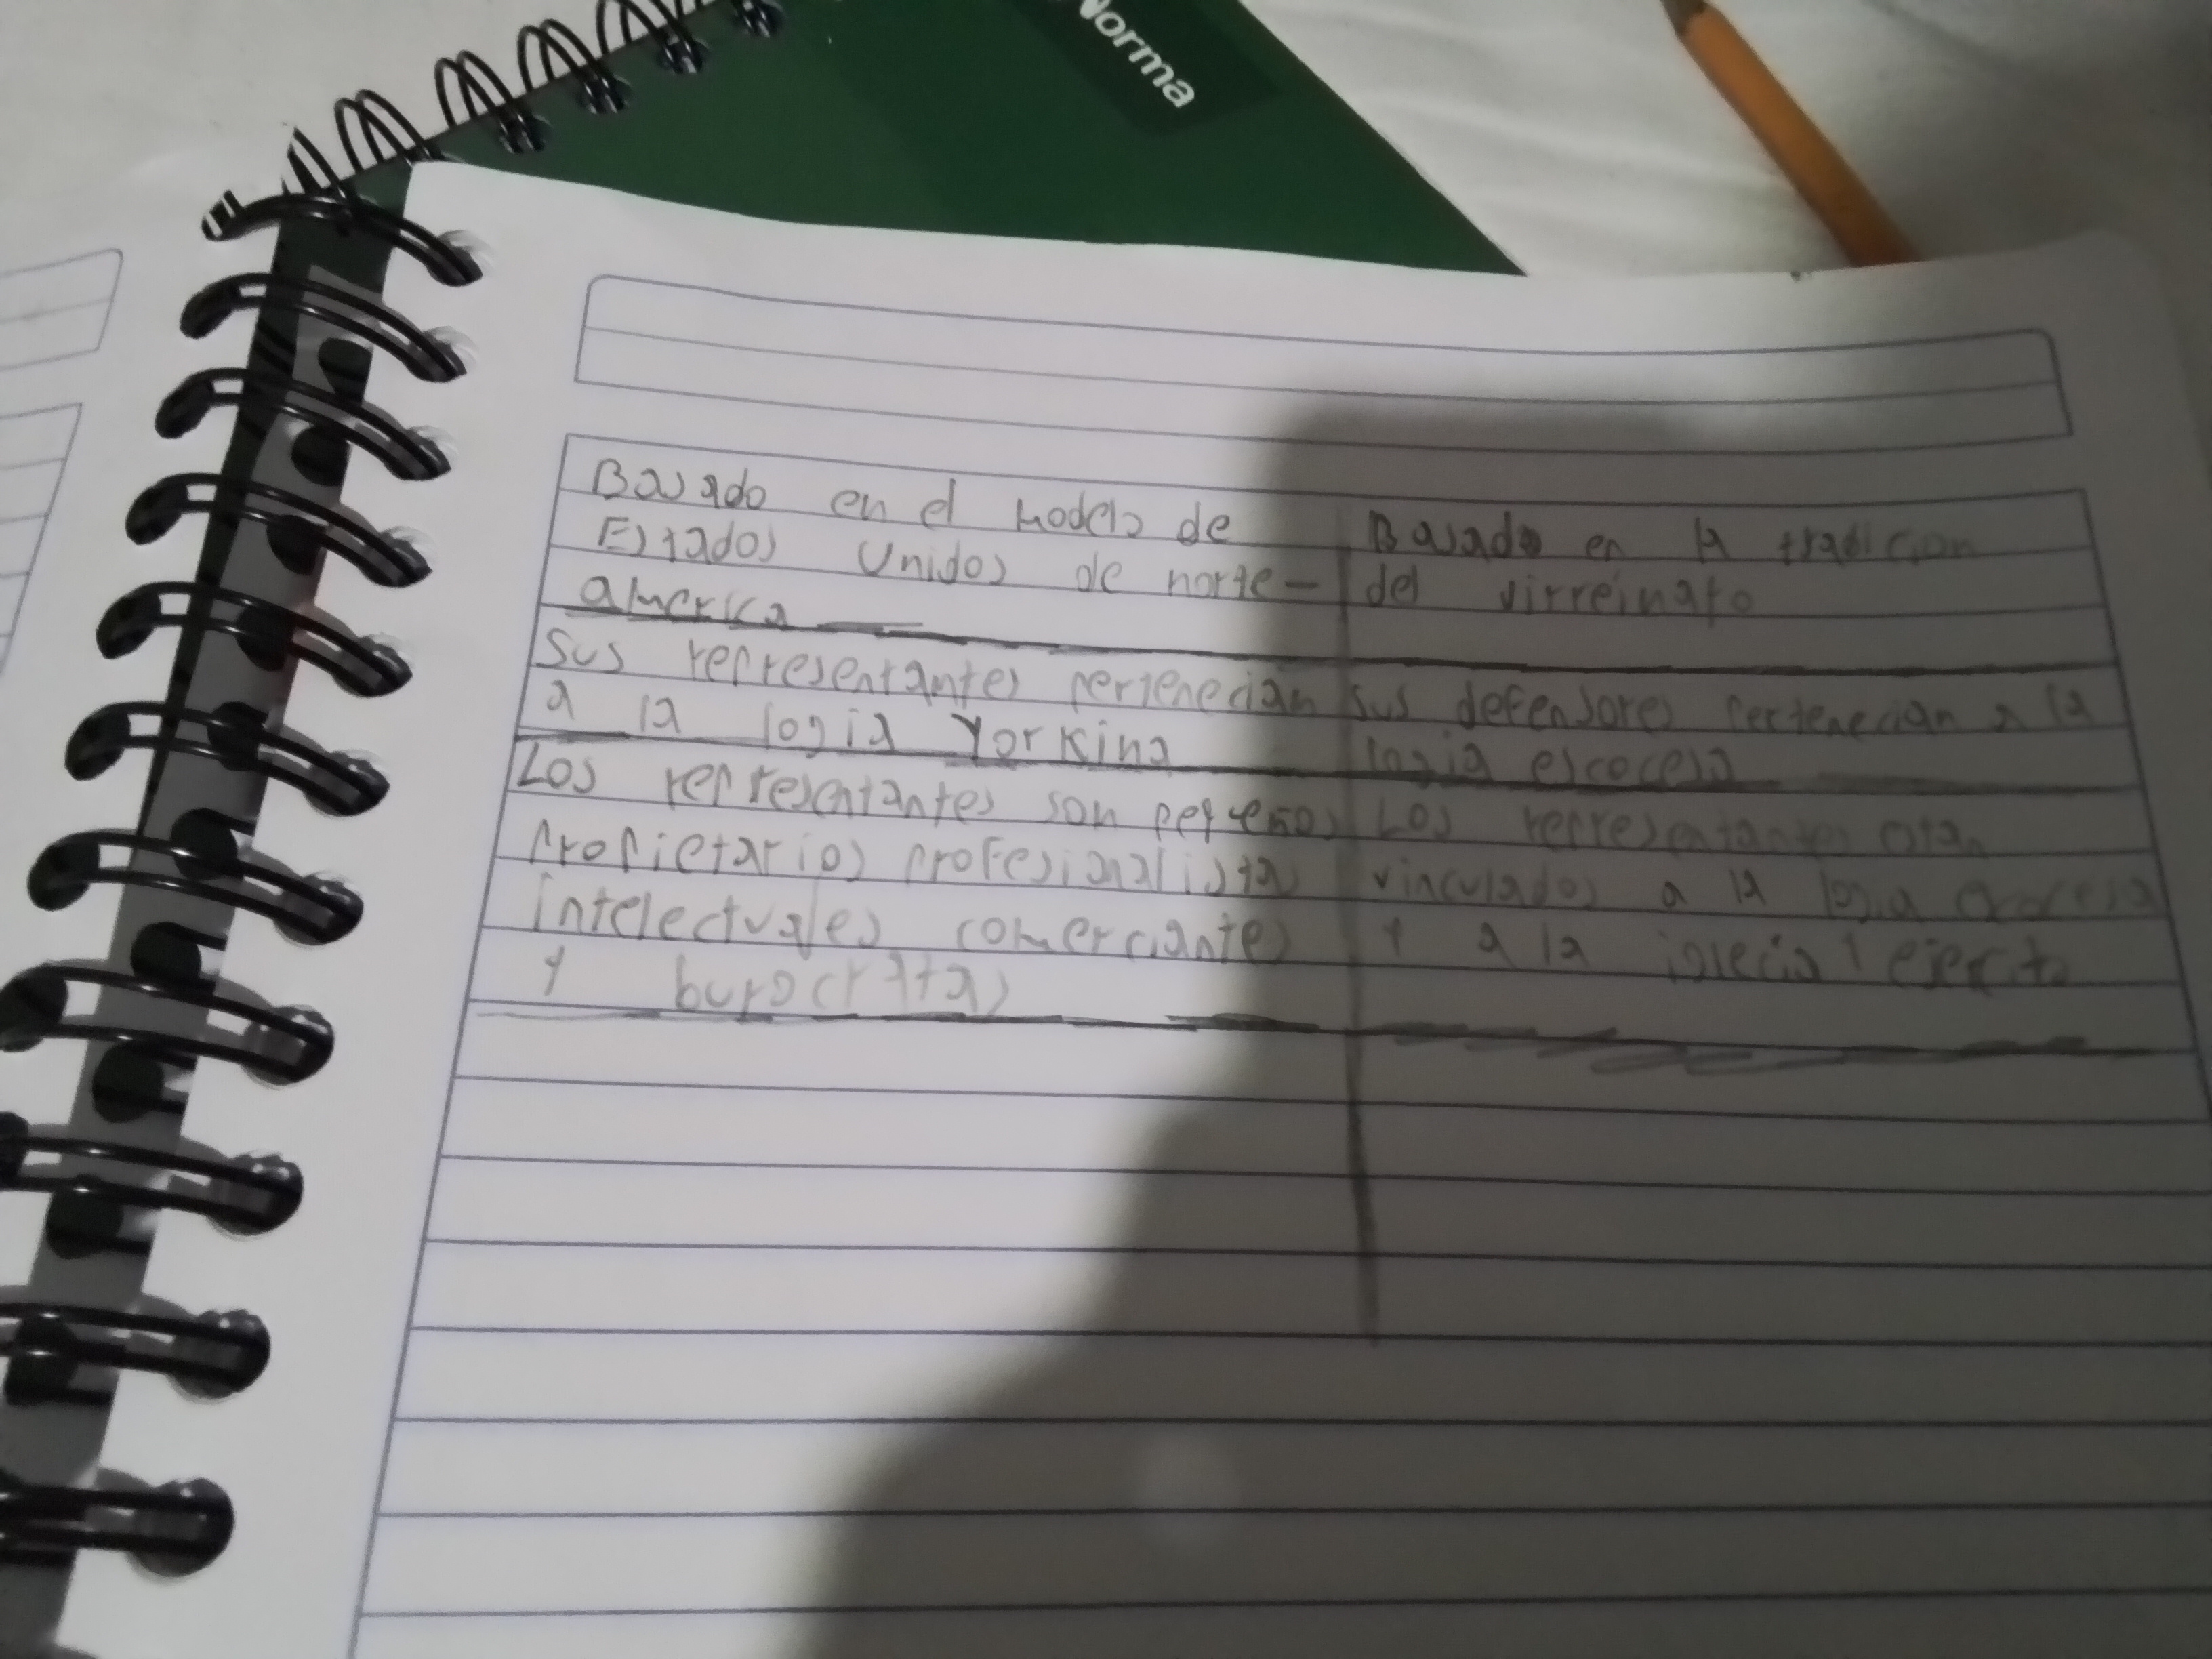 Norma
Basado en el modelo de
Estados Unidos de norte-
america
Sus representantes pertenecian
a la logia Yorkina
Los representantes son pequeños
propietarios profesionalistas
intelectuales comerciantes
y burocratas
Basado en la tradicion
del virreinato
sus defensores pertenecian a la
logia escocesa
Los representantes
vinculados a la logia escocesa
y a la iglecia ejercito